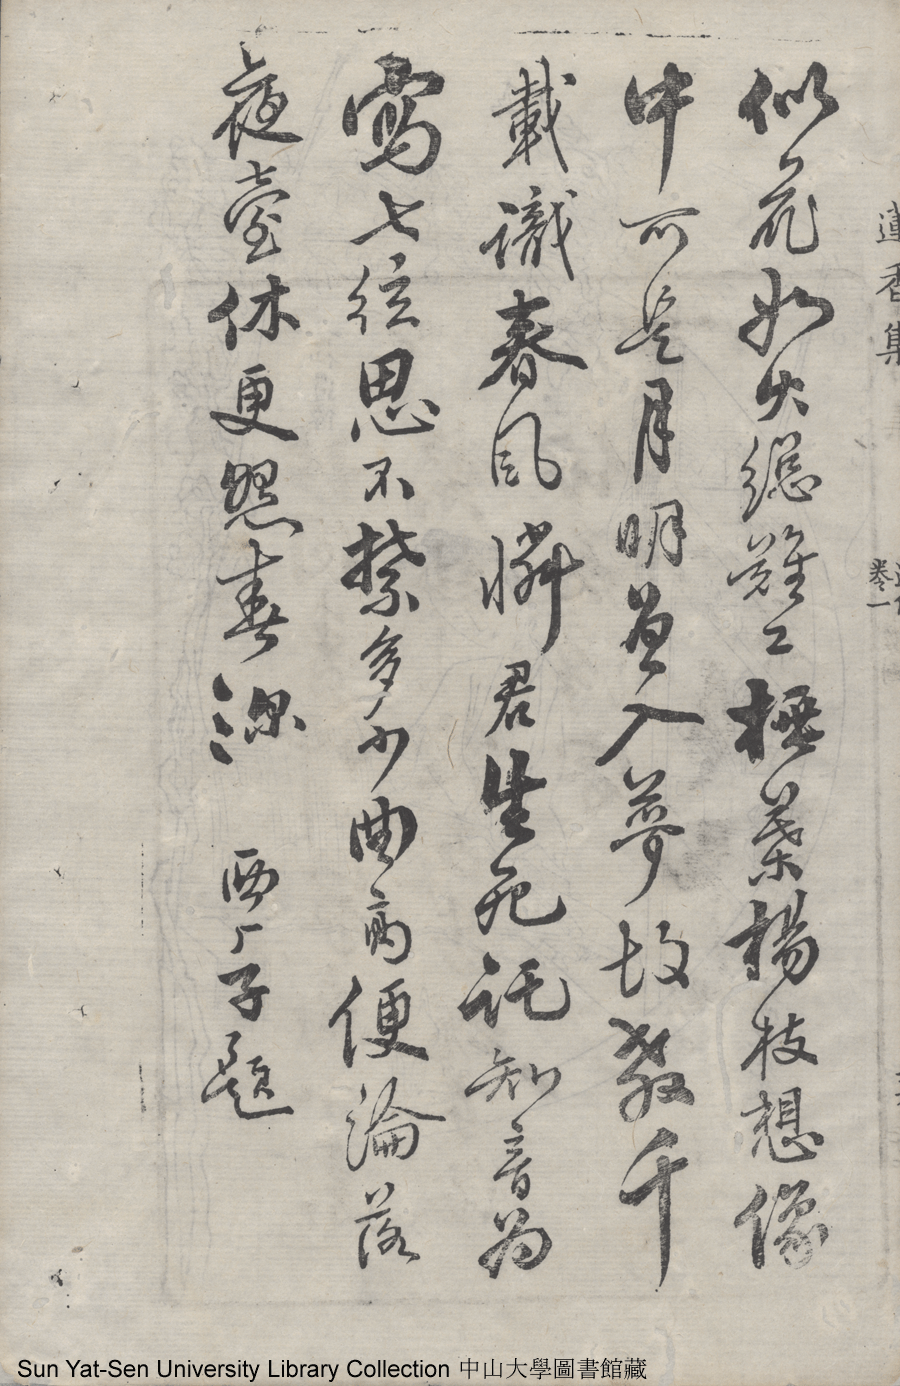 蓮香集
卷一
似花如火總難工葉楊枝想像
中可是月明曾入夢故教千
載識春風憐君生死託知音為
寫七弦思不禁多少曲高便淪落
夜臺休更春深 西厂子題
Sun Yat-Sen University Library Collection 中山大學圖書館藏